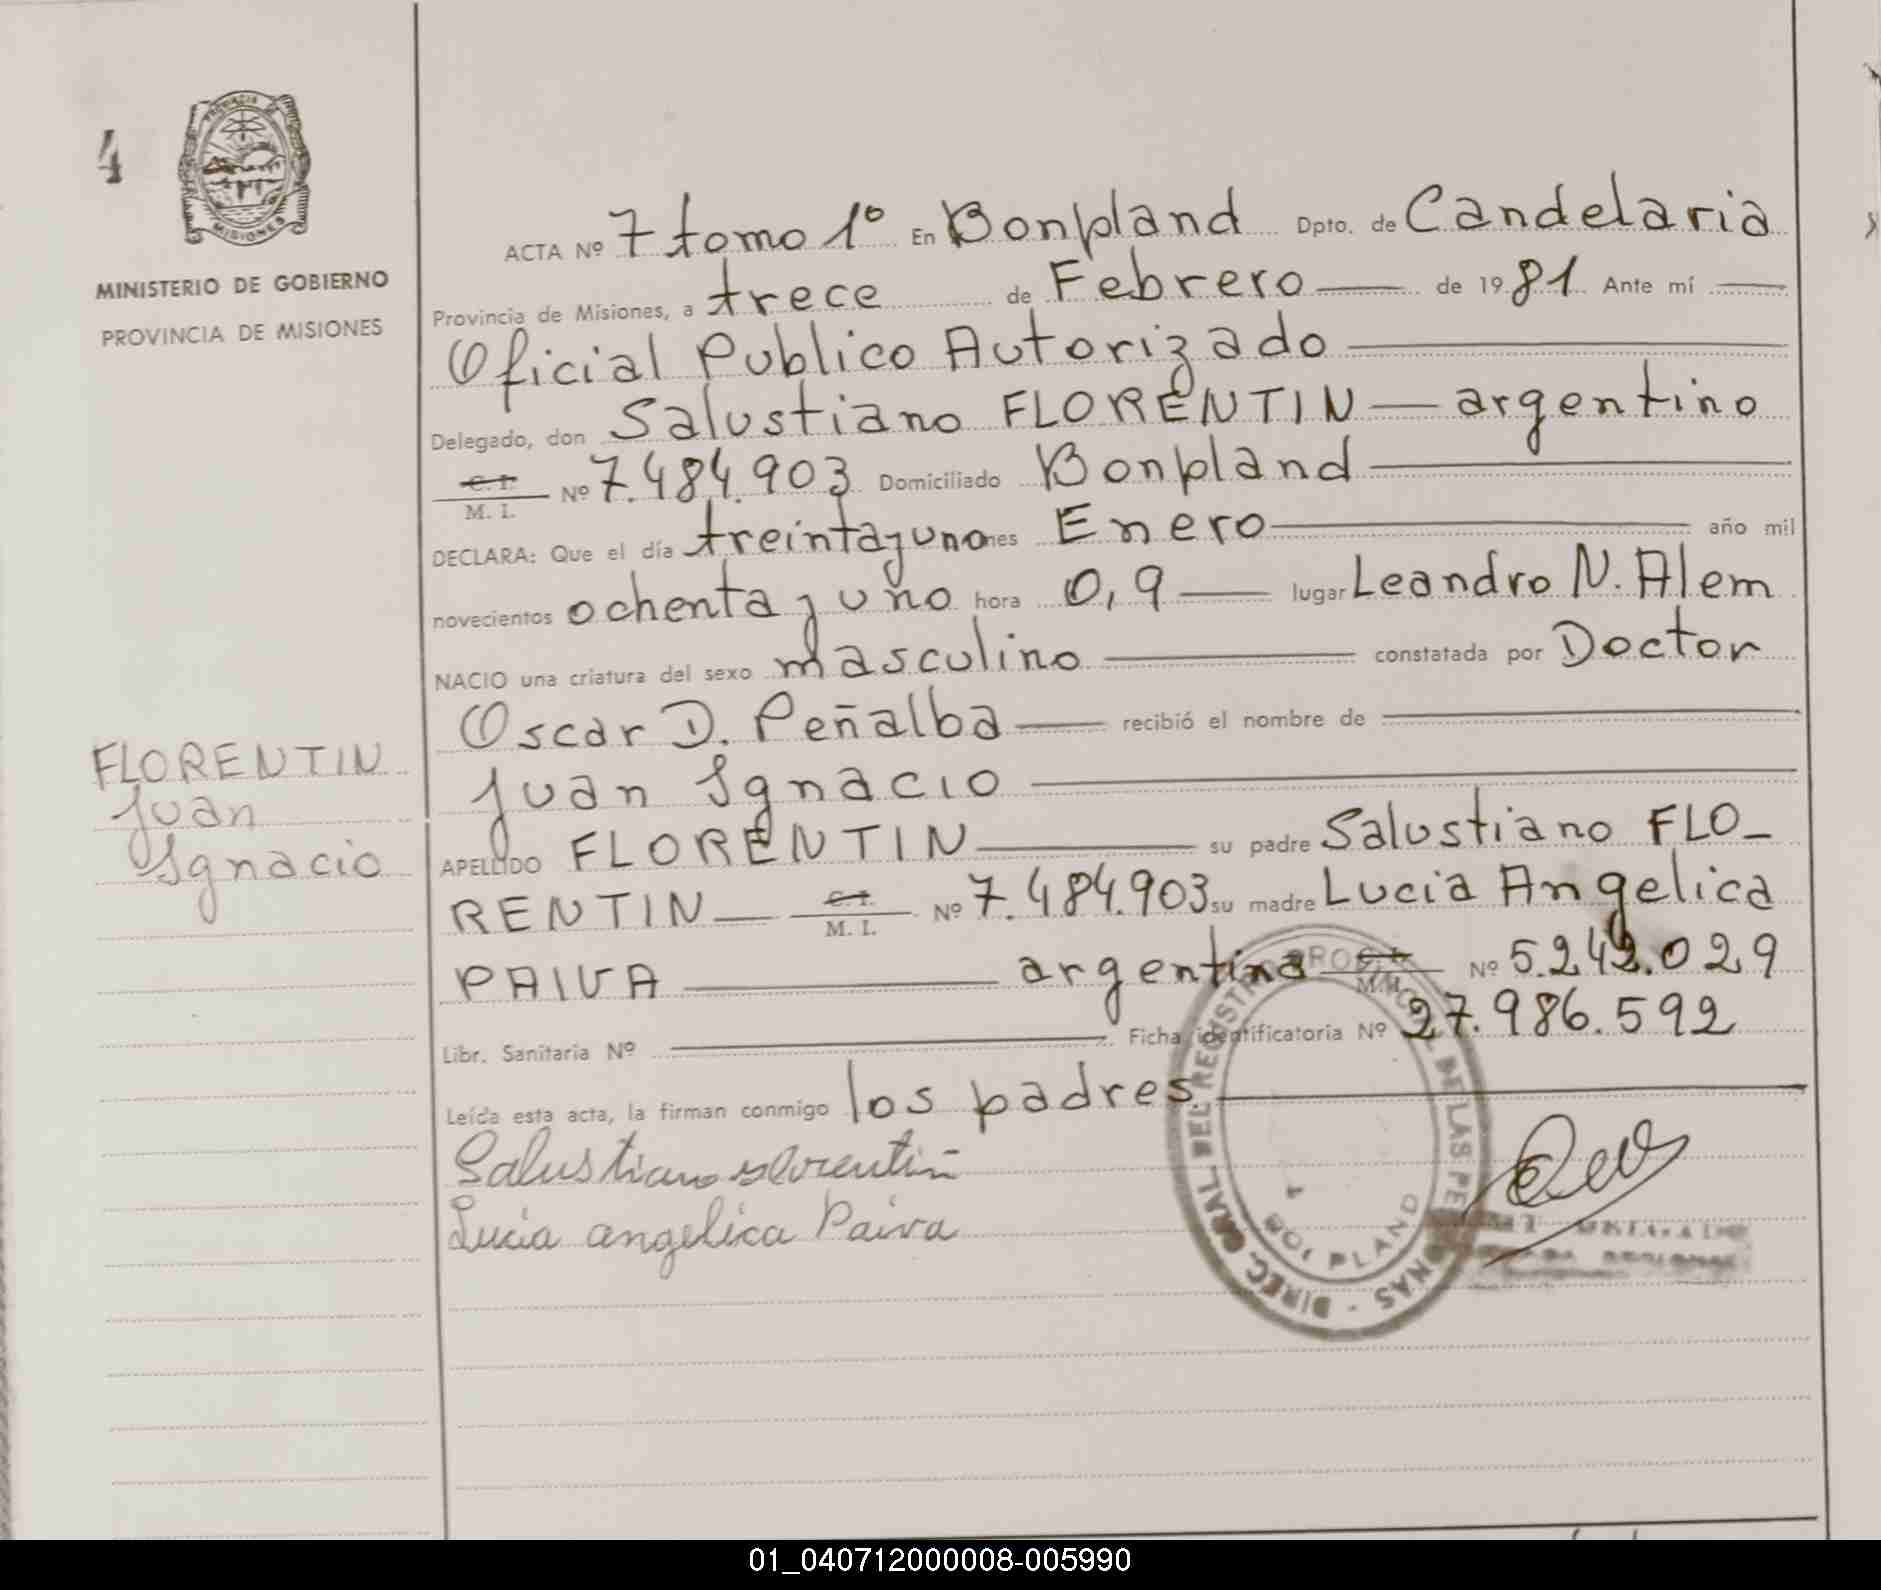 4
PROVINCIA DE
MISIONES
MINISTERIO DE GOBIERNO
PROVINCIA DE MISIONES
ACTA Nº 7 tomo 1º En Bonpland Dpto. de Candelaria
Provincia de Misiones, a trece de Febrero de 1981 Ante mí
Oficial Publico Autorizado
Delegado, don Salustiano FLORENTIN argentino
C. I. M. I. Nº 7.484.903 Domiciliado Bonpland
DECLARA: Que el día treinta y uno mes Enero año mil
novecientos ochenta y uno hora 0,9 lugar Leandro N. Alem
NACIO una criatura del sexo masculino constatada por Doctor
Oscar D. Peñalba recibió el nombre de
Juan Ignacio
APELLIDO FLORENTIN su padre Salustiano FLO-
RENTIN C. I. M. I. Nº 7.484.903 su madre Lucia Angelica
PAIVA argentina C. I. M. I. Nº 5.242.029
Libr. Sanitaria Nº Ficha identificatoria Nº 27.986.592
Leída esta acta, la firman conmigo los padres.
Salustiano Florentin
Lucia angelica Paiva
FLORENTIN
Juan
Ignacio
DIREC. GRAL. DEL REGISTRO PROVINCIAL DE LAS PERSONAS
BONPLAND
01_040712000008-005990